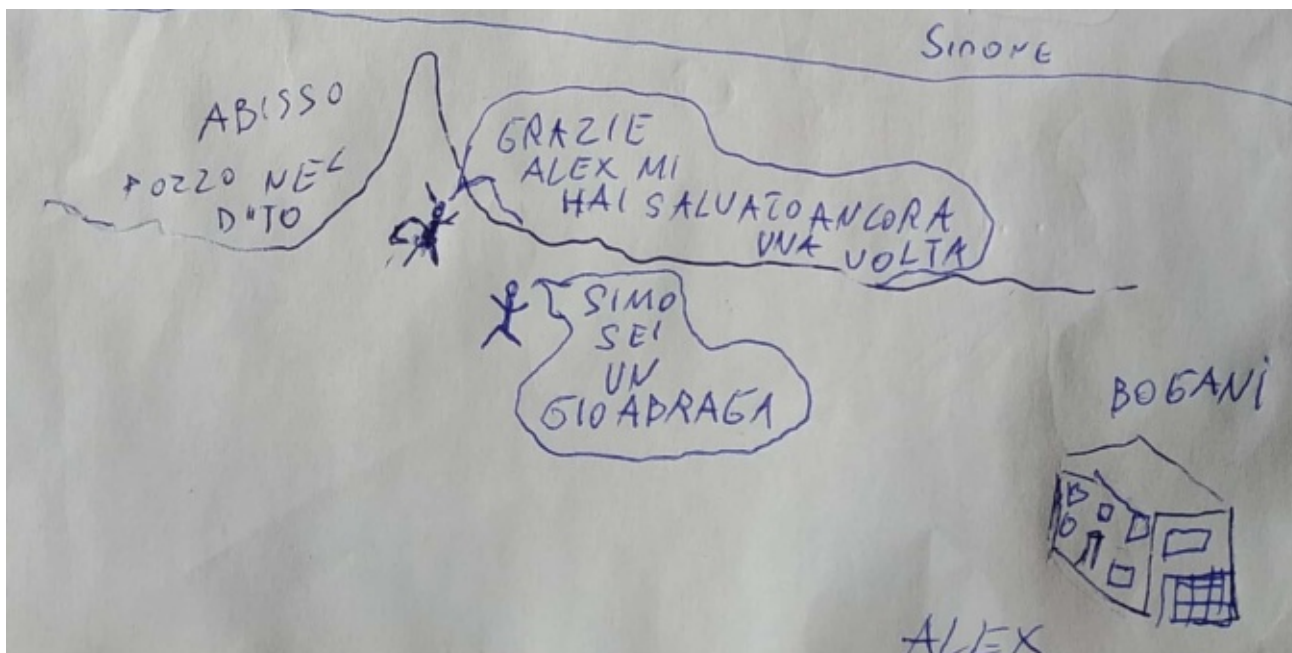 SIMONE
ABISSO
POZZO NEL
DITO
GRAZIE
ALEX MI
HAI SALVATO ANCORA
UNA VOLTA
SIMO
SEI
UN
GIOABRAGA
BOGANI
ALEX